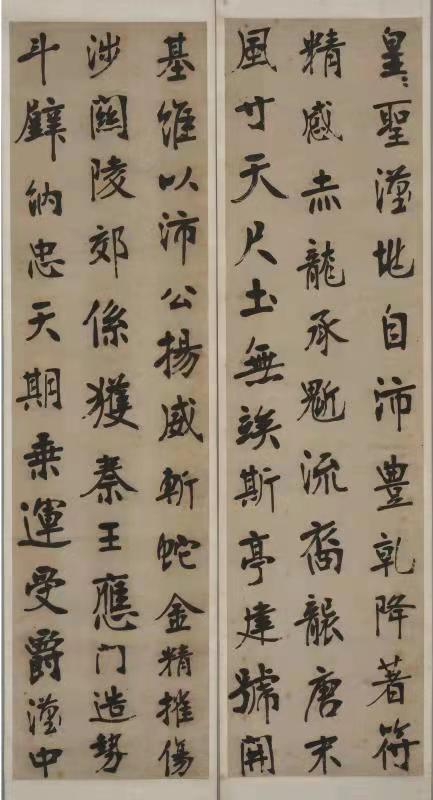 皇〻聖漢兆自沛豊乾降著符
精感赤龍承魁流裔龍唐末
風寸天尺土無竢斯亭建號開
基維以沛公揚威斬蛇金精摧傷
涉關陵郊係獲秦王應门造勢
斗璧納忠天期乗運受爵漢中